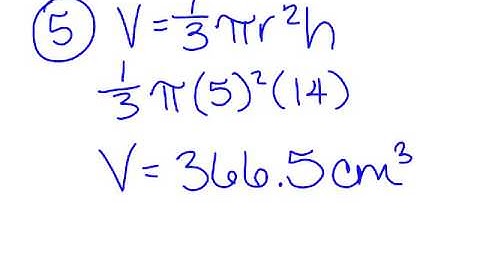 ⑤ V = 1/3 πr²h
1/3 π(5)²(14)
V = 366.5 cm³